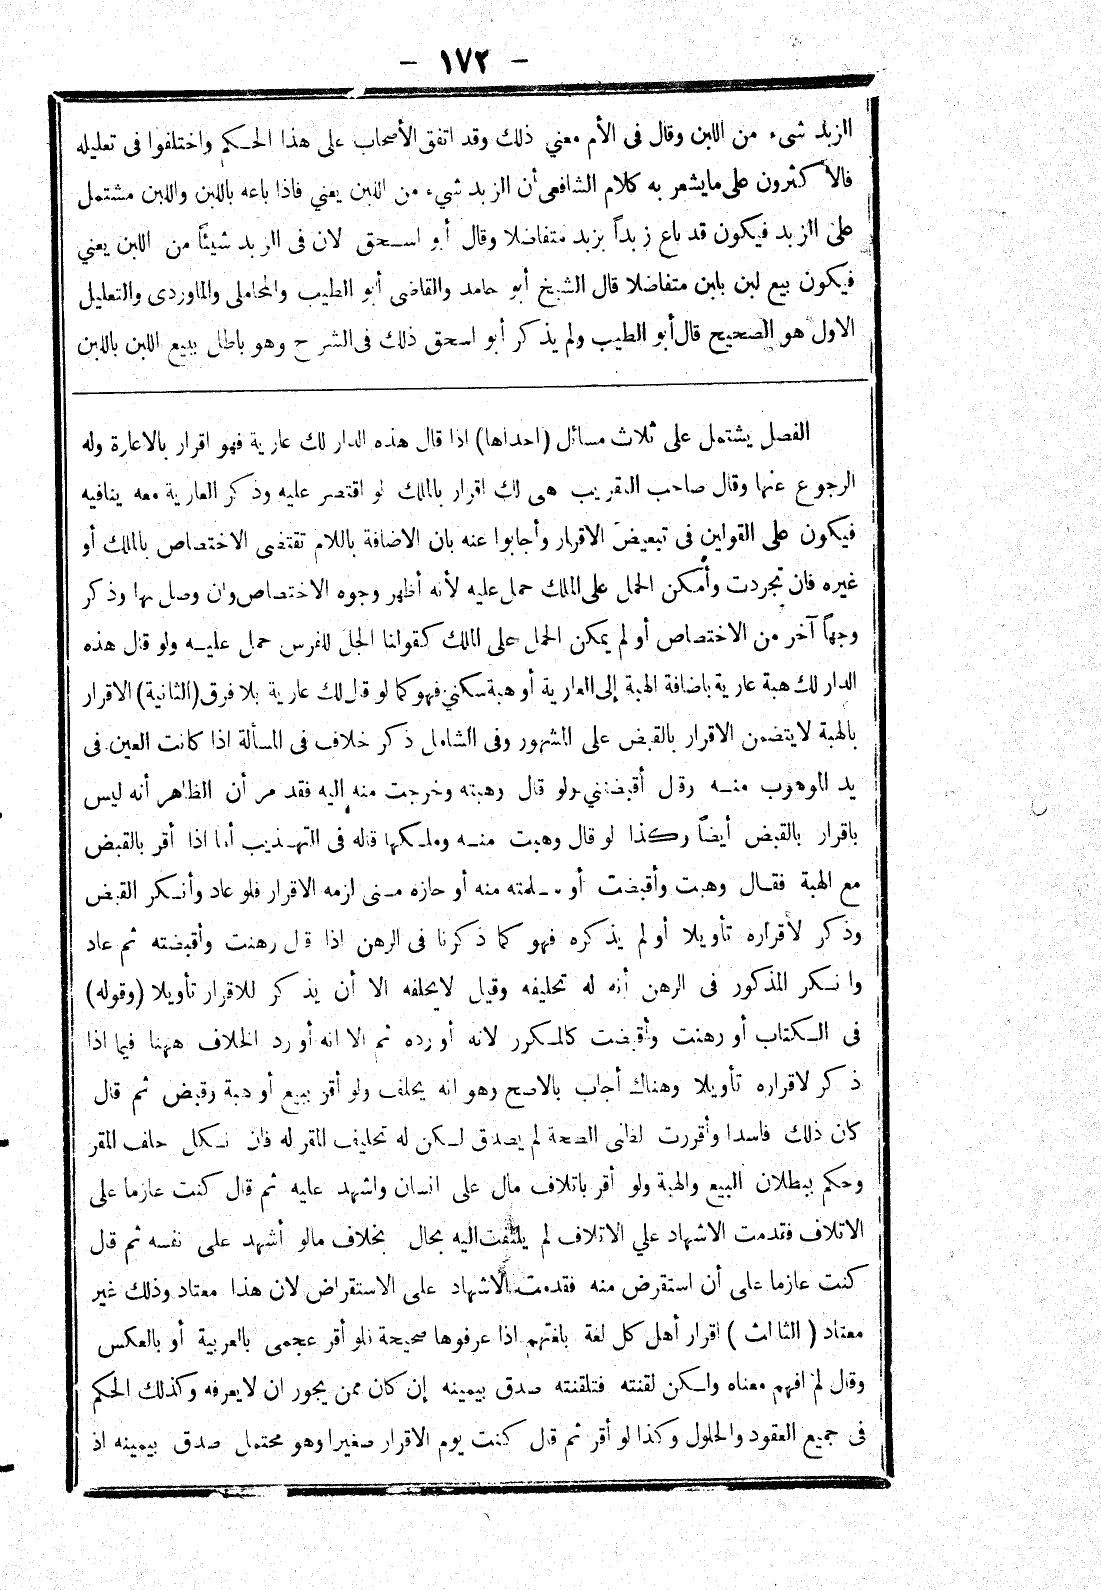 - ١٧٢ -
الزبد شيء من اللبن وقال فى الأم معني ذلك وقد اتفق الأصحاب على هذا الحكم واختلفوا فى تعليله
فالأكثرون على مايشعر به كلام الشافعى أن الزبد شيء من اللبن يعني فاذا باعه باللبن واللبن مشتمل
على الزبد فيكون قد باع زبداً بزبد متفاضلا وقال أبو اسحق لان فى الزبد شيئاً من اللبن يعني
فيكون بيع لبن بلبن متفاضلا قال الشيخ أبو حامد والقاضى أبو الطيب والمحاملى والماوردى والتعليل
الاول هو الصحيح قال أبو الطيب ولم يذكر أبو اسحق ذلك فى الشرح وهو باطل ببيع اللبن باللبن
الفصل يشتمل على ثلاث مسائل (احداها) اذا قال هذه الدار لك عارية فهو اقرار بالاعارة وله
الرجوع عنها وقال صاحب التقريب هى لك اقرار بالملك لو اقتصر عليه وذكر العارية معه ينافيه
فيكون على القولين فى تبعيض الاقرار وأجابوا عنه بان الاضافة باللام تقتضى الاختصاص بالملك أو
غيره فان تجردت وأمكن الحمل على الملك حمل عليه لأنه أظهر وجوه الاختصاص وان وصل بها وذكر
وجهاً آخر من الاختصاص أو لم يمكن الحمل على الملك كقولنا الجل للفرس حمل عليه ولو قال هذه
الدار لك هبة عارية باضافة الهبة إلى العارية أو هبة سكني فهو كما لو قال لك عارية بلا فرق (الثانية) الاقرار
بالهبة لا يتضمن الاقرار بالقبض على المشهور وفى الشامل ذكر خلاف فى المسألة اذا كانت العين فى
يد الموهوب منه وقال أقبضتني ولو قال وهبته وخرجت منه اليه فقد مر أن الظاهر أنه ليس
باقرار بالقبض أيضاً وكذا لو قال وهبت منه وملكها قاله فى التهذيب أما اذا أقر بالقبض
مع الهبة فقال وهبت وأقبضت أو سلمته منه أو حازه منى لزمه الاقرار فلو عاد وأنكر القبض
وذكر لأقراره تأويلا أو لم يذكره فهو كما ذكرنا فى الرهن اذا قال رهنت وأقبضته ثم عاد
وانكر المذكور فى الرهن أنه له تحليفه وقيل لا يحلفه الا أن يذكر للاقرار تأويلا (وقوله)
فى الكتاب أو رهنت وأقبضت كالمكرر لانه أورده ثم الا انه أورد الخلاف ههنا فيما اذا
ذكر لاقراره تأويلا وهناك أجاب بالاصح وهو انه يحلف ولو أقر ببيع أو هبة وقبض ثم قال
كان ذلك فاسدا وأقررت لظنى الصحة لم يصدق لكن له تحليف المقر له فان نكل حلف المقر
وحكم ببطلان البيع والهبة ولو أقر باتلاف مال على انسان واشهد عليه ثم قال كنت عازما على
الاتلاف فقدمت الاشهاد علي الاتلاف لم يلتفت اليه بحال بخلاف مالو أشهد على نفسه ثم قال
كنت عازما على أن استقرض منه فقدمت الاشهاد على الاستقراض لان هذا معتاد وذلك غير
معتاد (الثالث) اقرار أهل كل لغة بلغتهم اذا عرفوها صحيحة فلو أقر عجمى بالعربية أو بالعكس
وقال لم افهم معناه ولكن لقنته فتلقنته صدق بيمينه إن كان ممن يجوز ان لا يعرفه وكذلك الحكم
فى جميع العقود والحلول وكذا لو أقر ثم قال كنت يوم الاقرار صغيرا وهو محتمل صدق بيمينه اذ